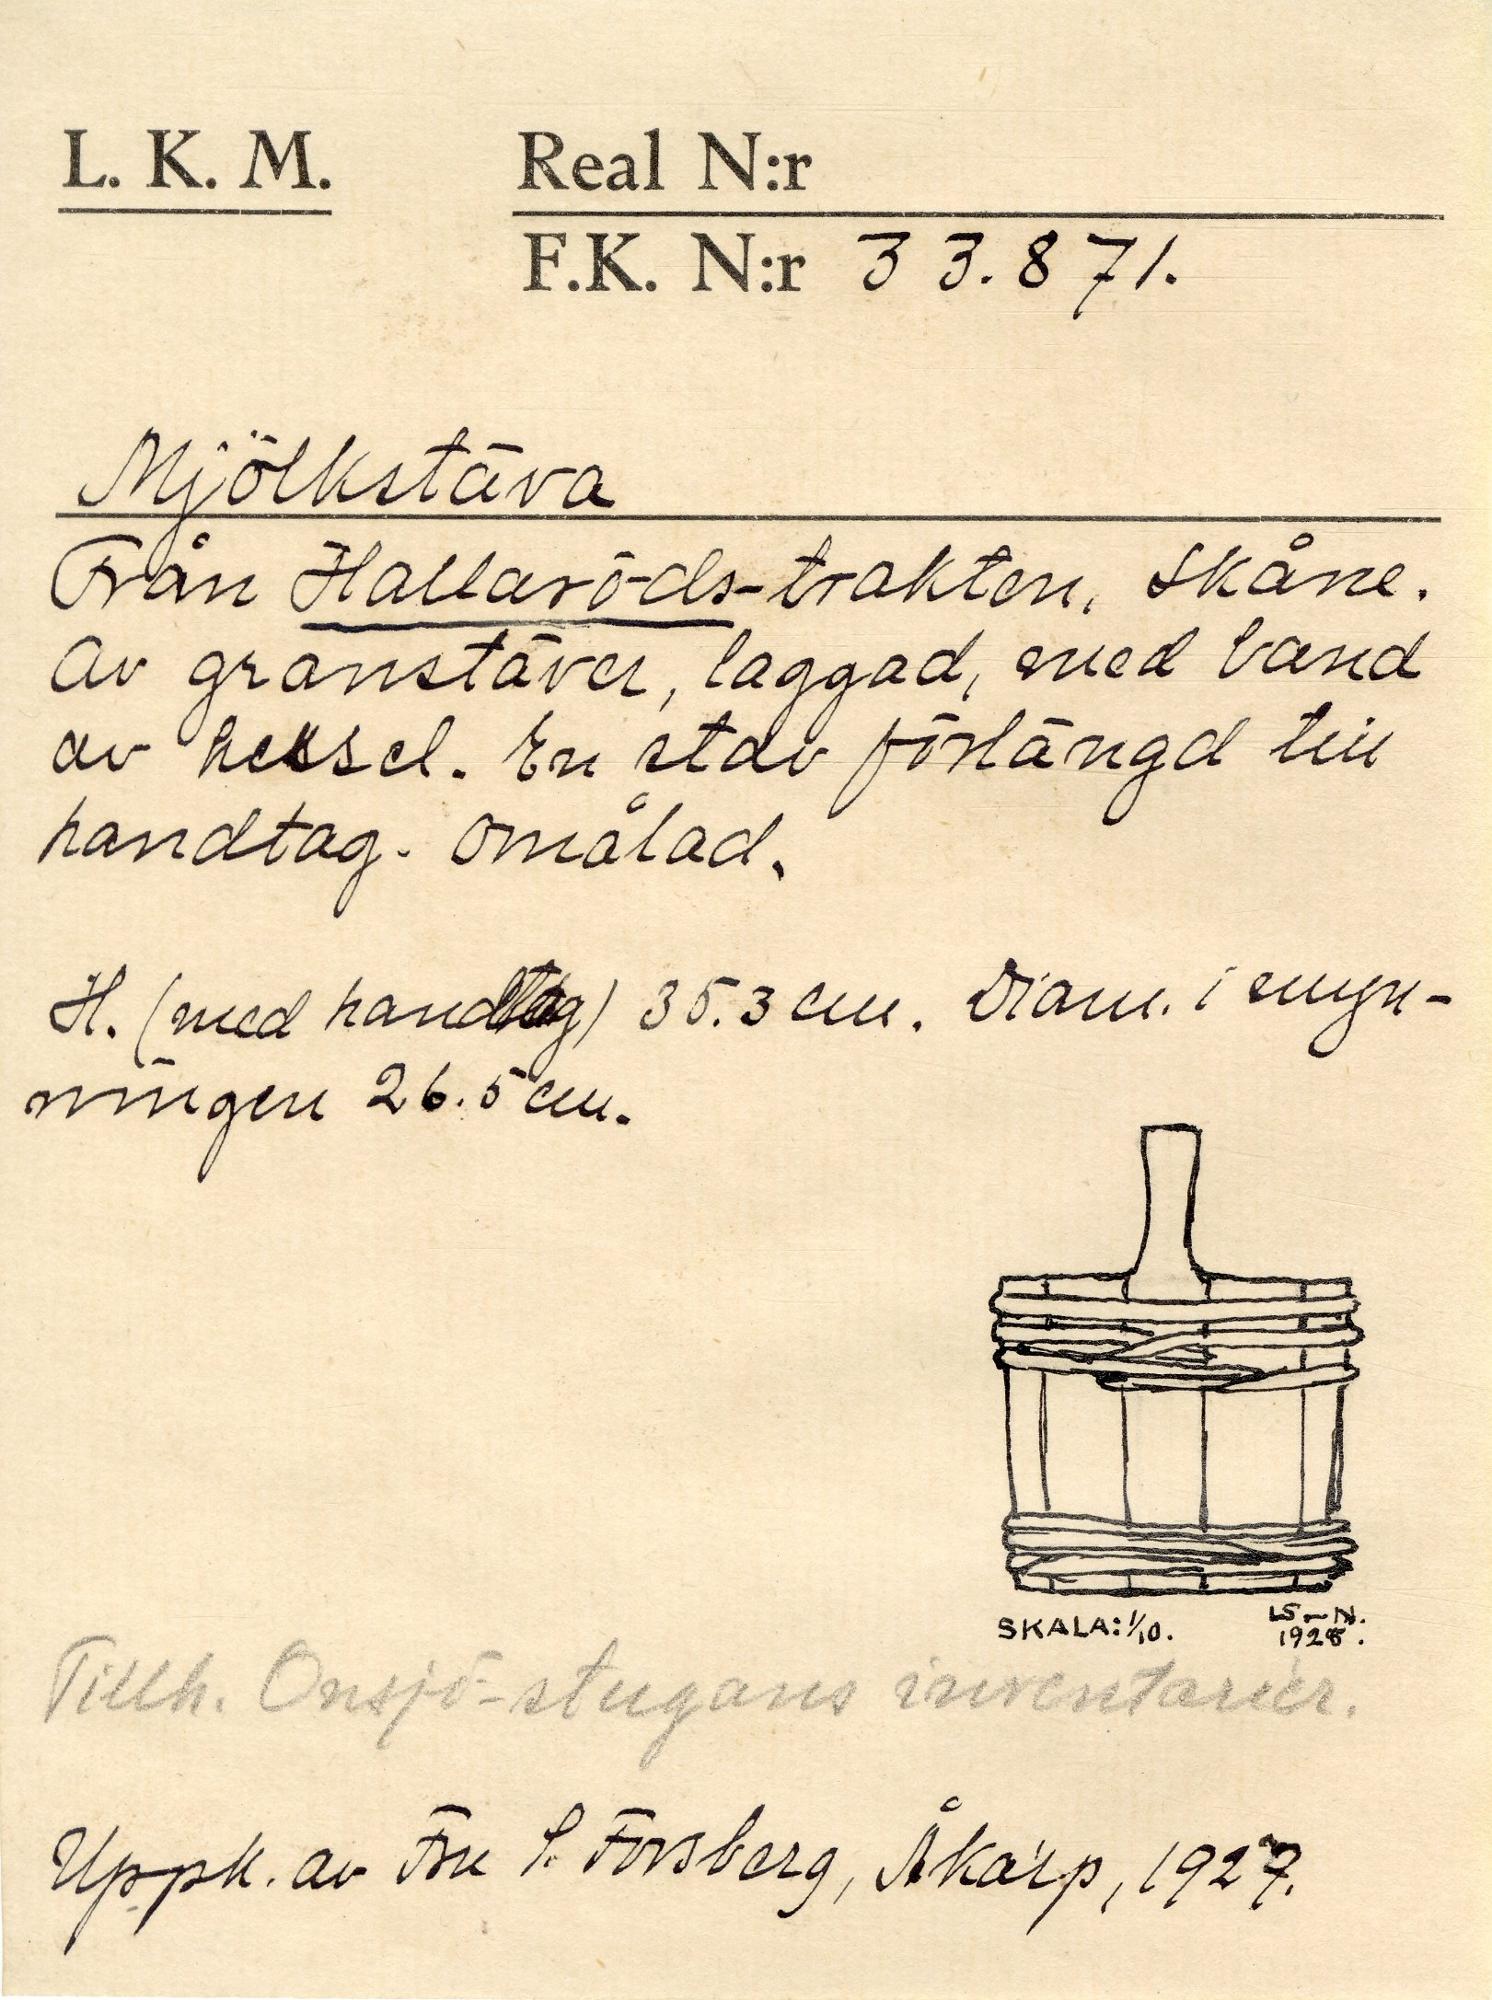 L. K. M.
Real N:r
F.K. N:r 33.871.
Mjölkstäva
Från Hallaröds-trakten, Skåne.
Av granstäver, laggad, med band
av hassel. En stav förlängd till
handtag. Omålad.
H. (med handtag) 35.3 cm. Diam. i myn-
ningen 26.5 cm.
SKALA: 1/10.
LS-N.
1928.
Tillh. Onsjö-stugans inventarier.
Uppk. av Fru S. Forsberg, Åkarp, 1927.